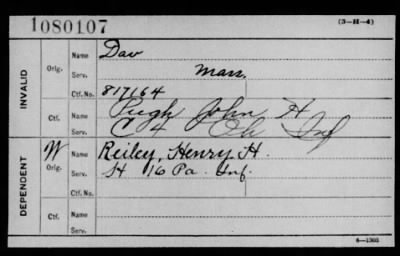 1080107
(3-H-4)
INVALID
Orig.
Name
Serv. Mass.
Ctf. No. 817164
Ctf.
Name Pugh John H
Serv. C 4 Oh Inf
DEPENDENT
W
Orig.
Name Reiley, Henry H.
Serv. H 16 Pa. Inf.
Ctf. No.
Ctf.
Name
Serv.
6-1303